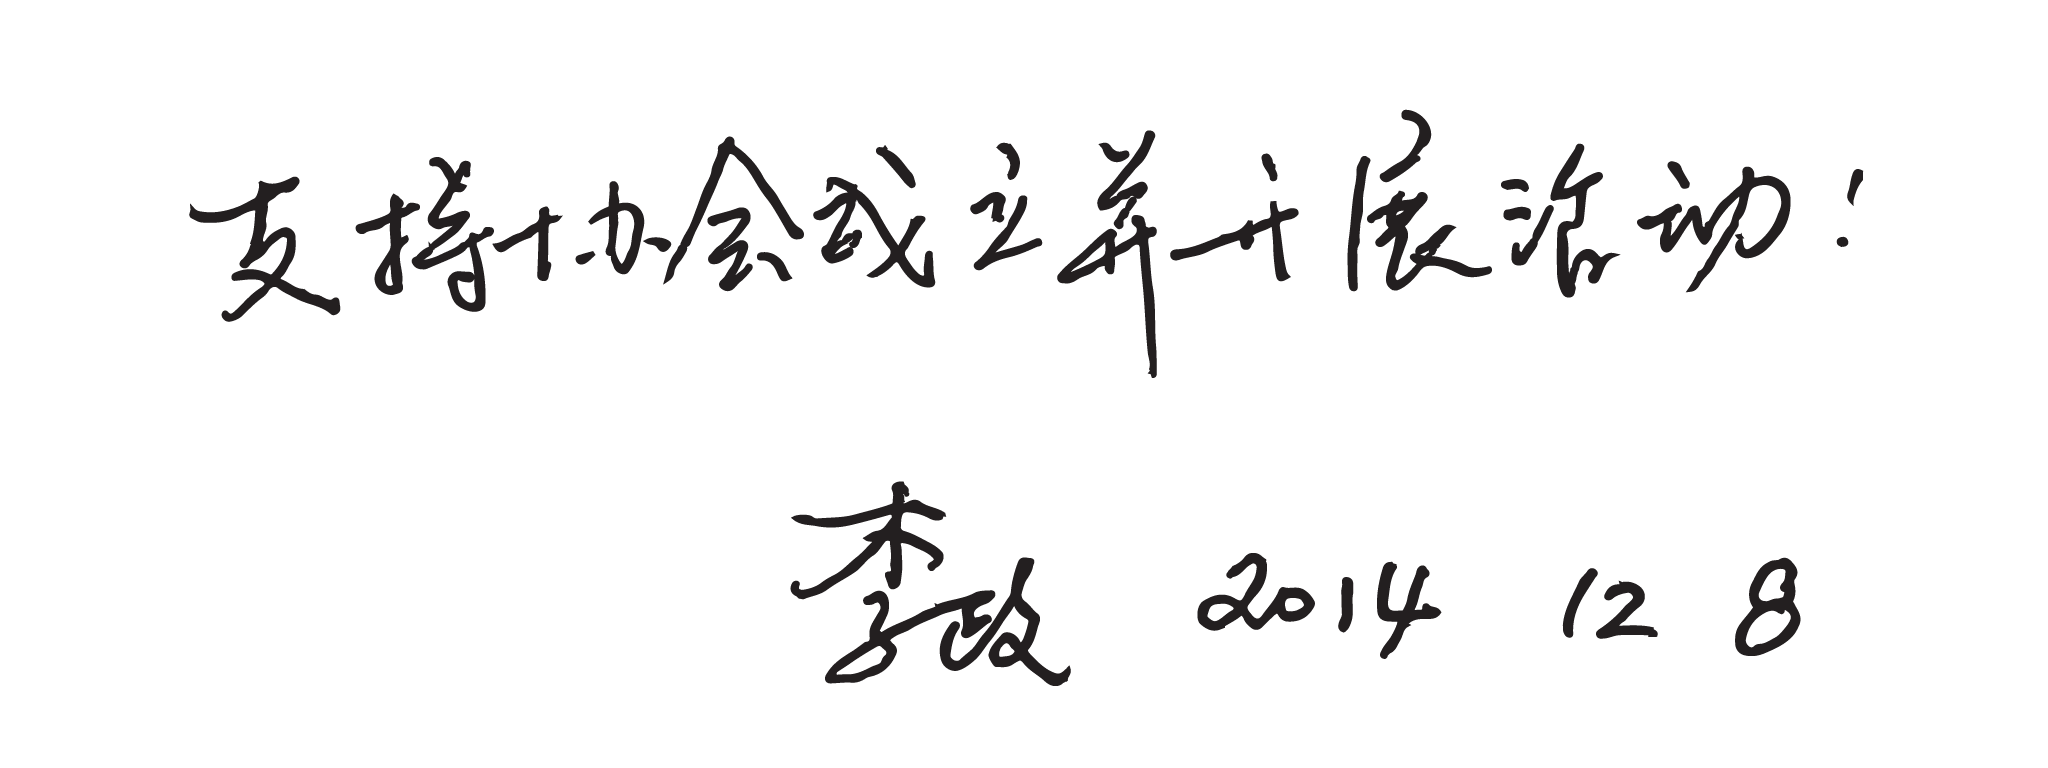 支持协会成立并开展活动!
李政 2014 12 8